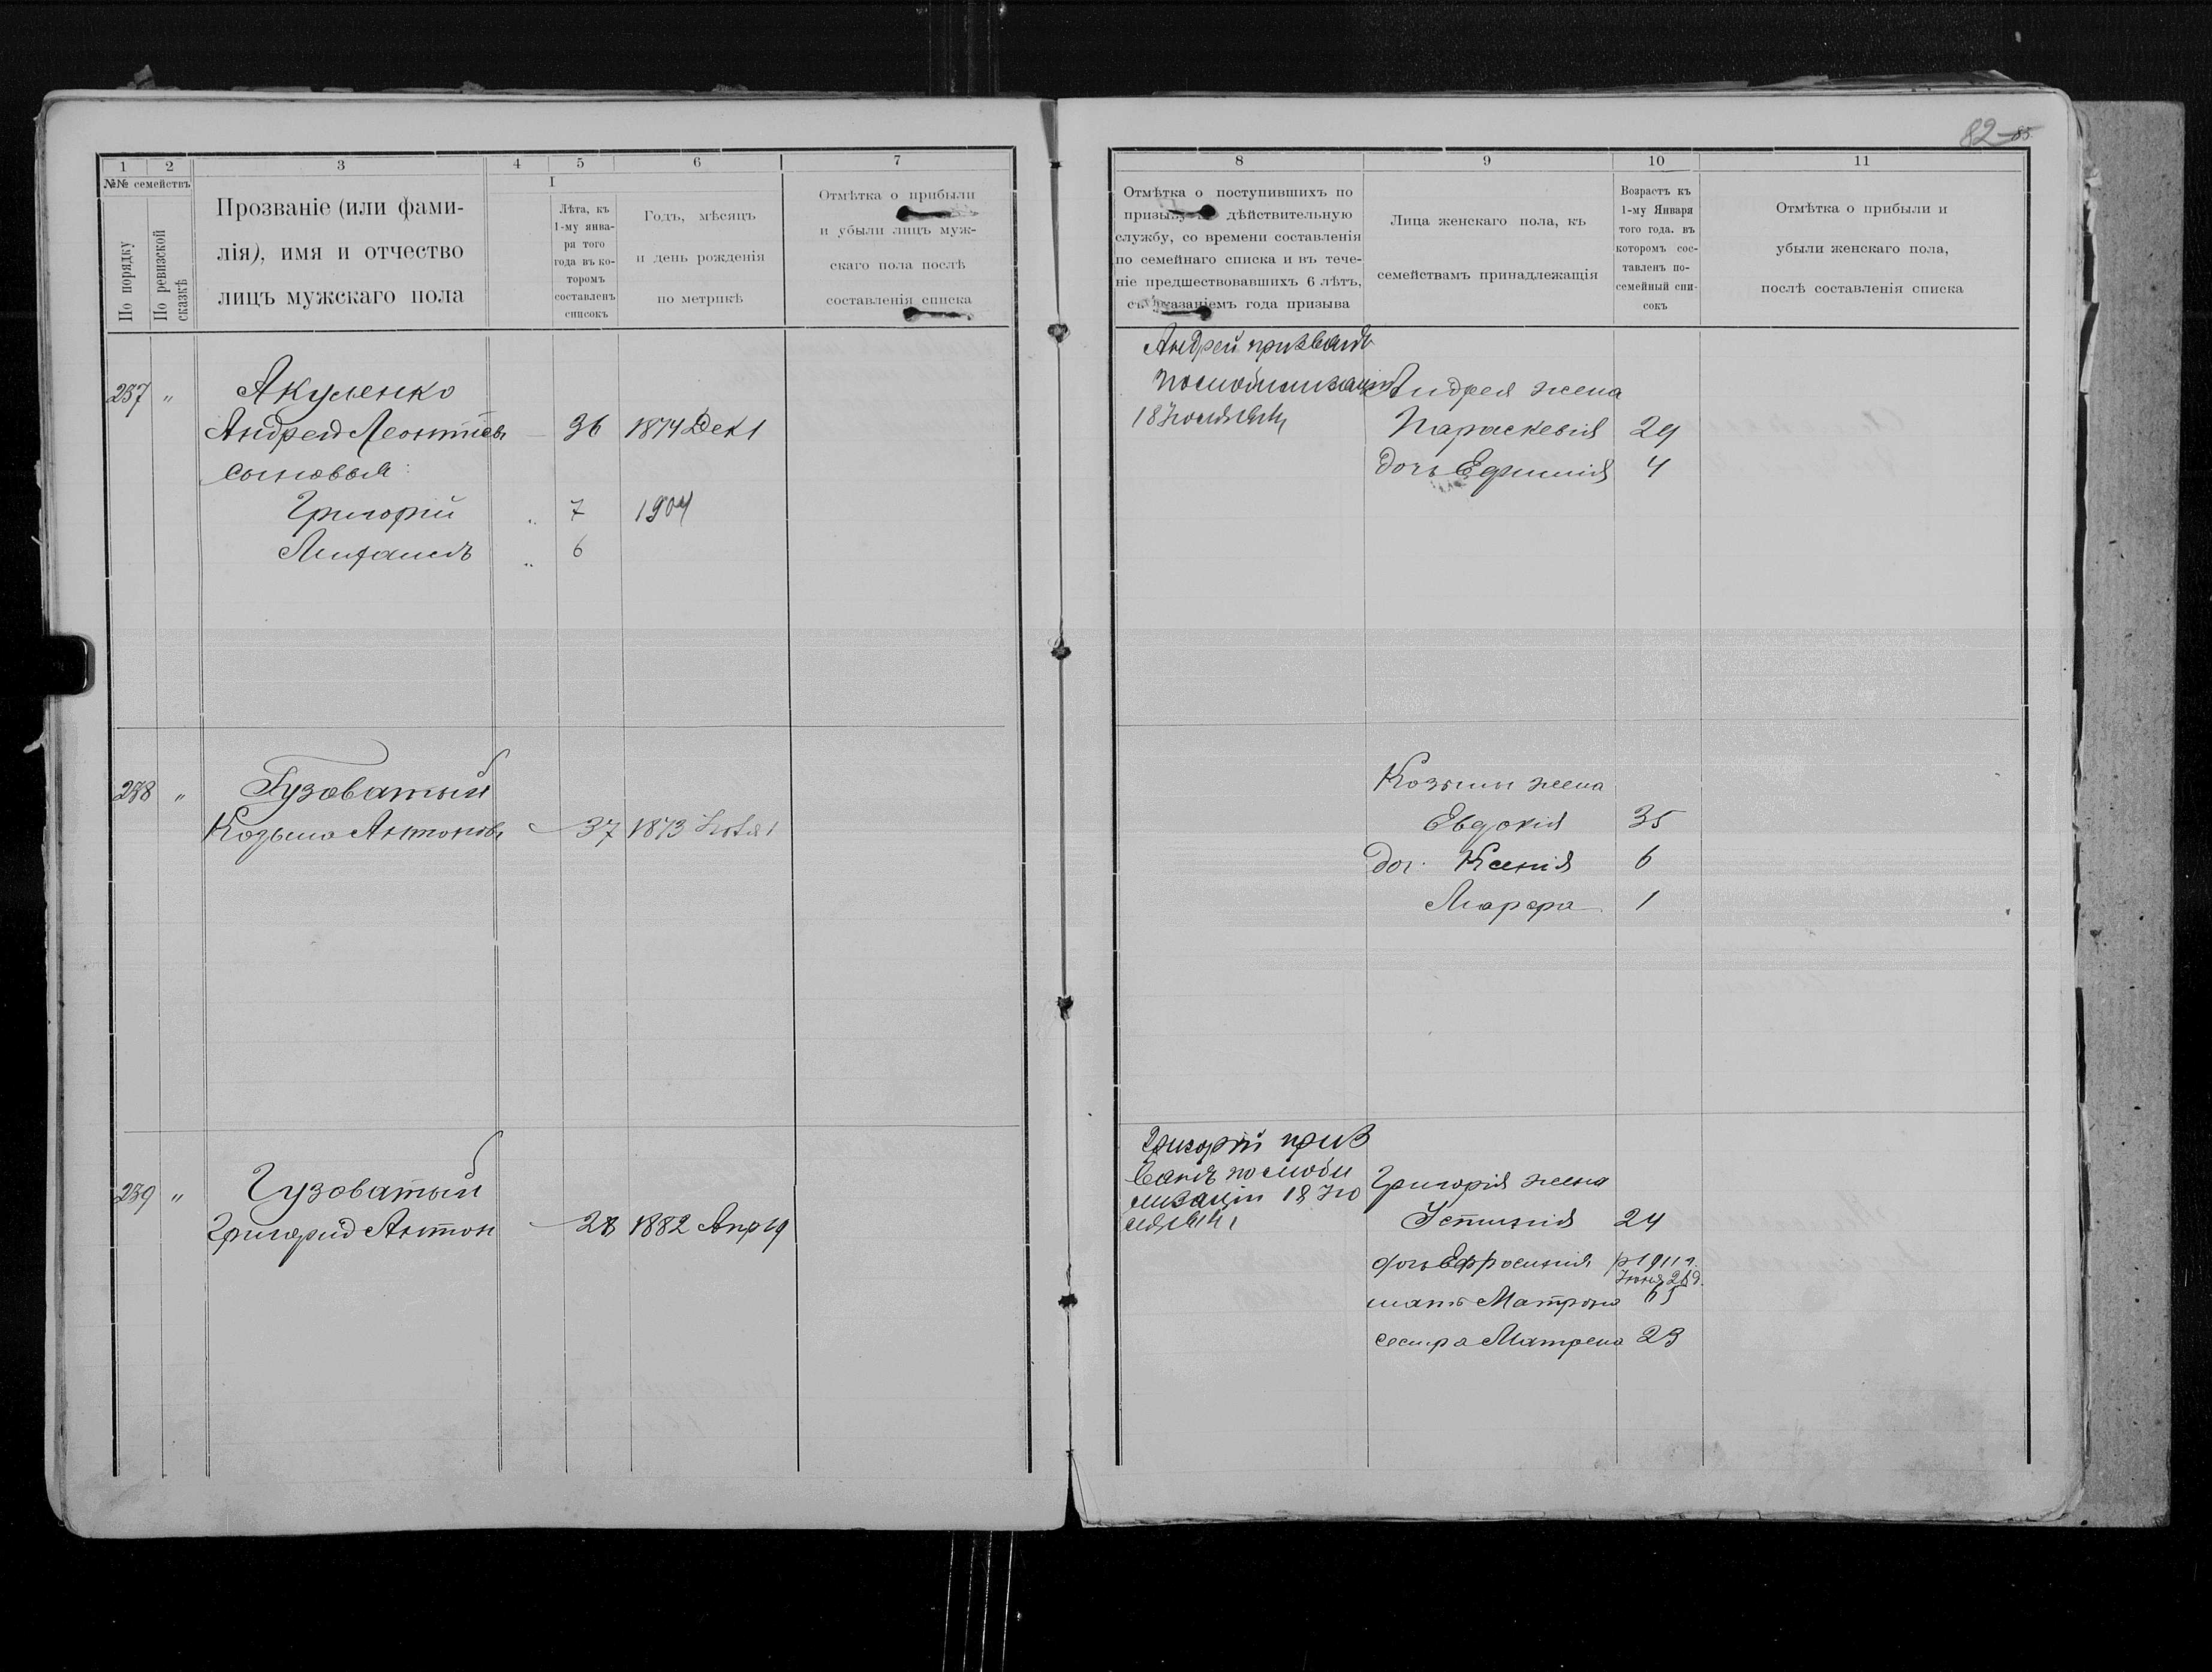 82 85
1
2
3
4
5
6
7
№№ семействъ
По порядку
По ревизской сказкѣ
Прозваніе (или фами-
лія), имя и отчество
лицъ мужскаго пола
I
Лѣта, къ
1-му янва-
ря того
года въ ко-
торомъ
составленъ
списокъ
Годъ, мѣсяцъ
и день рожденія
по метрикѣ
Отмѣтка о прибыли
и убыли лицъ муж-
скаго пола послѣ
составленія списка
237 " Акуленко
Андрей Леонтіевъ 36 1874 Дек 1
сыновья:
Григорій " 7 1904
" 6
238 " Гузоватый
Козьма Антоновъ 37 1873 Ноя 1
239 " Гузоватый
Григорій Антон 28 1882 Апр 19
8
9
10
11
Отмѣтка о поступившихъ по
призыву на дѣйствительную
службу, со времени составленія
по семейнаго списка и въ тече-
ніе предшествовавшихъ 6 лѣтъ,
съ указаніемъ года призыва
Лица женскаго пола, къ
семействамъ принадлежащія
Возрастъ къ
1-му Января
того года. въ
которомъ сос-
тавленъ по-
семейный спи-
сокъ
Отмѣтка о прибыли и
убыли женскаго пола,
послѣ составленія списка
Андрей призванъ
по мобилизаціи
18 Іюля 1914
Андрея жена
Параскевія 29
дочь Ефимія 4
Козьмы жена
Евдокія 35
доч. Ксенія 6
Марфа 1
Григорій приз
ванъ по моби
лизаціи 18 Ію
ля 1914
Григорія жена
Устинія 24
дочь Ефросинія р 1911 г.
Іюня 28 д.
мать Матрона 65
сестра Матрена 23